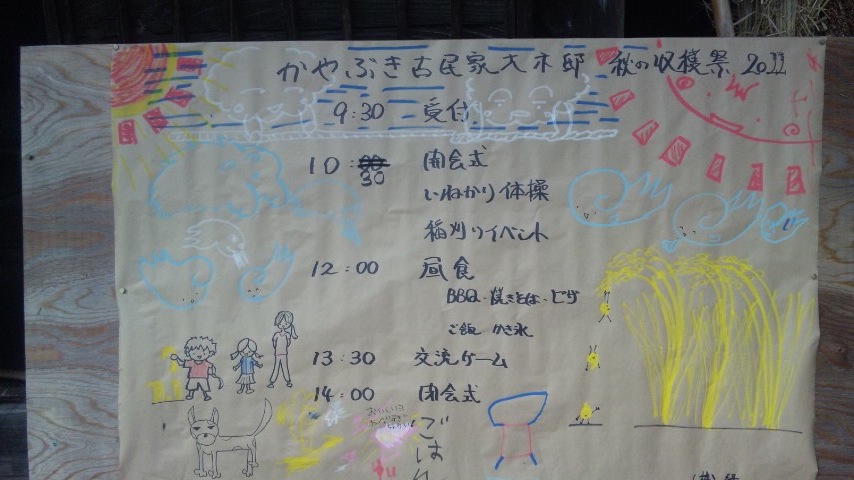 かやぶき古民家大木邸 秋の収穫祭 2011
9:30 受付
10:30 開会式
いねかり体操
稲刈りイベント
12:00 昼食
BBQ・焼きそば・ピザ
ご飯 かき氷
13:30 交流ゲーム
14:00 閉会式
ごはん